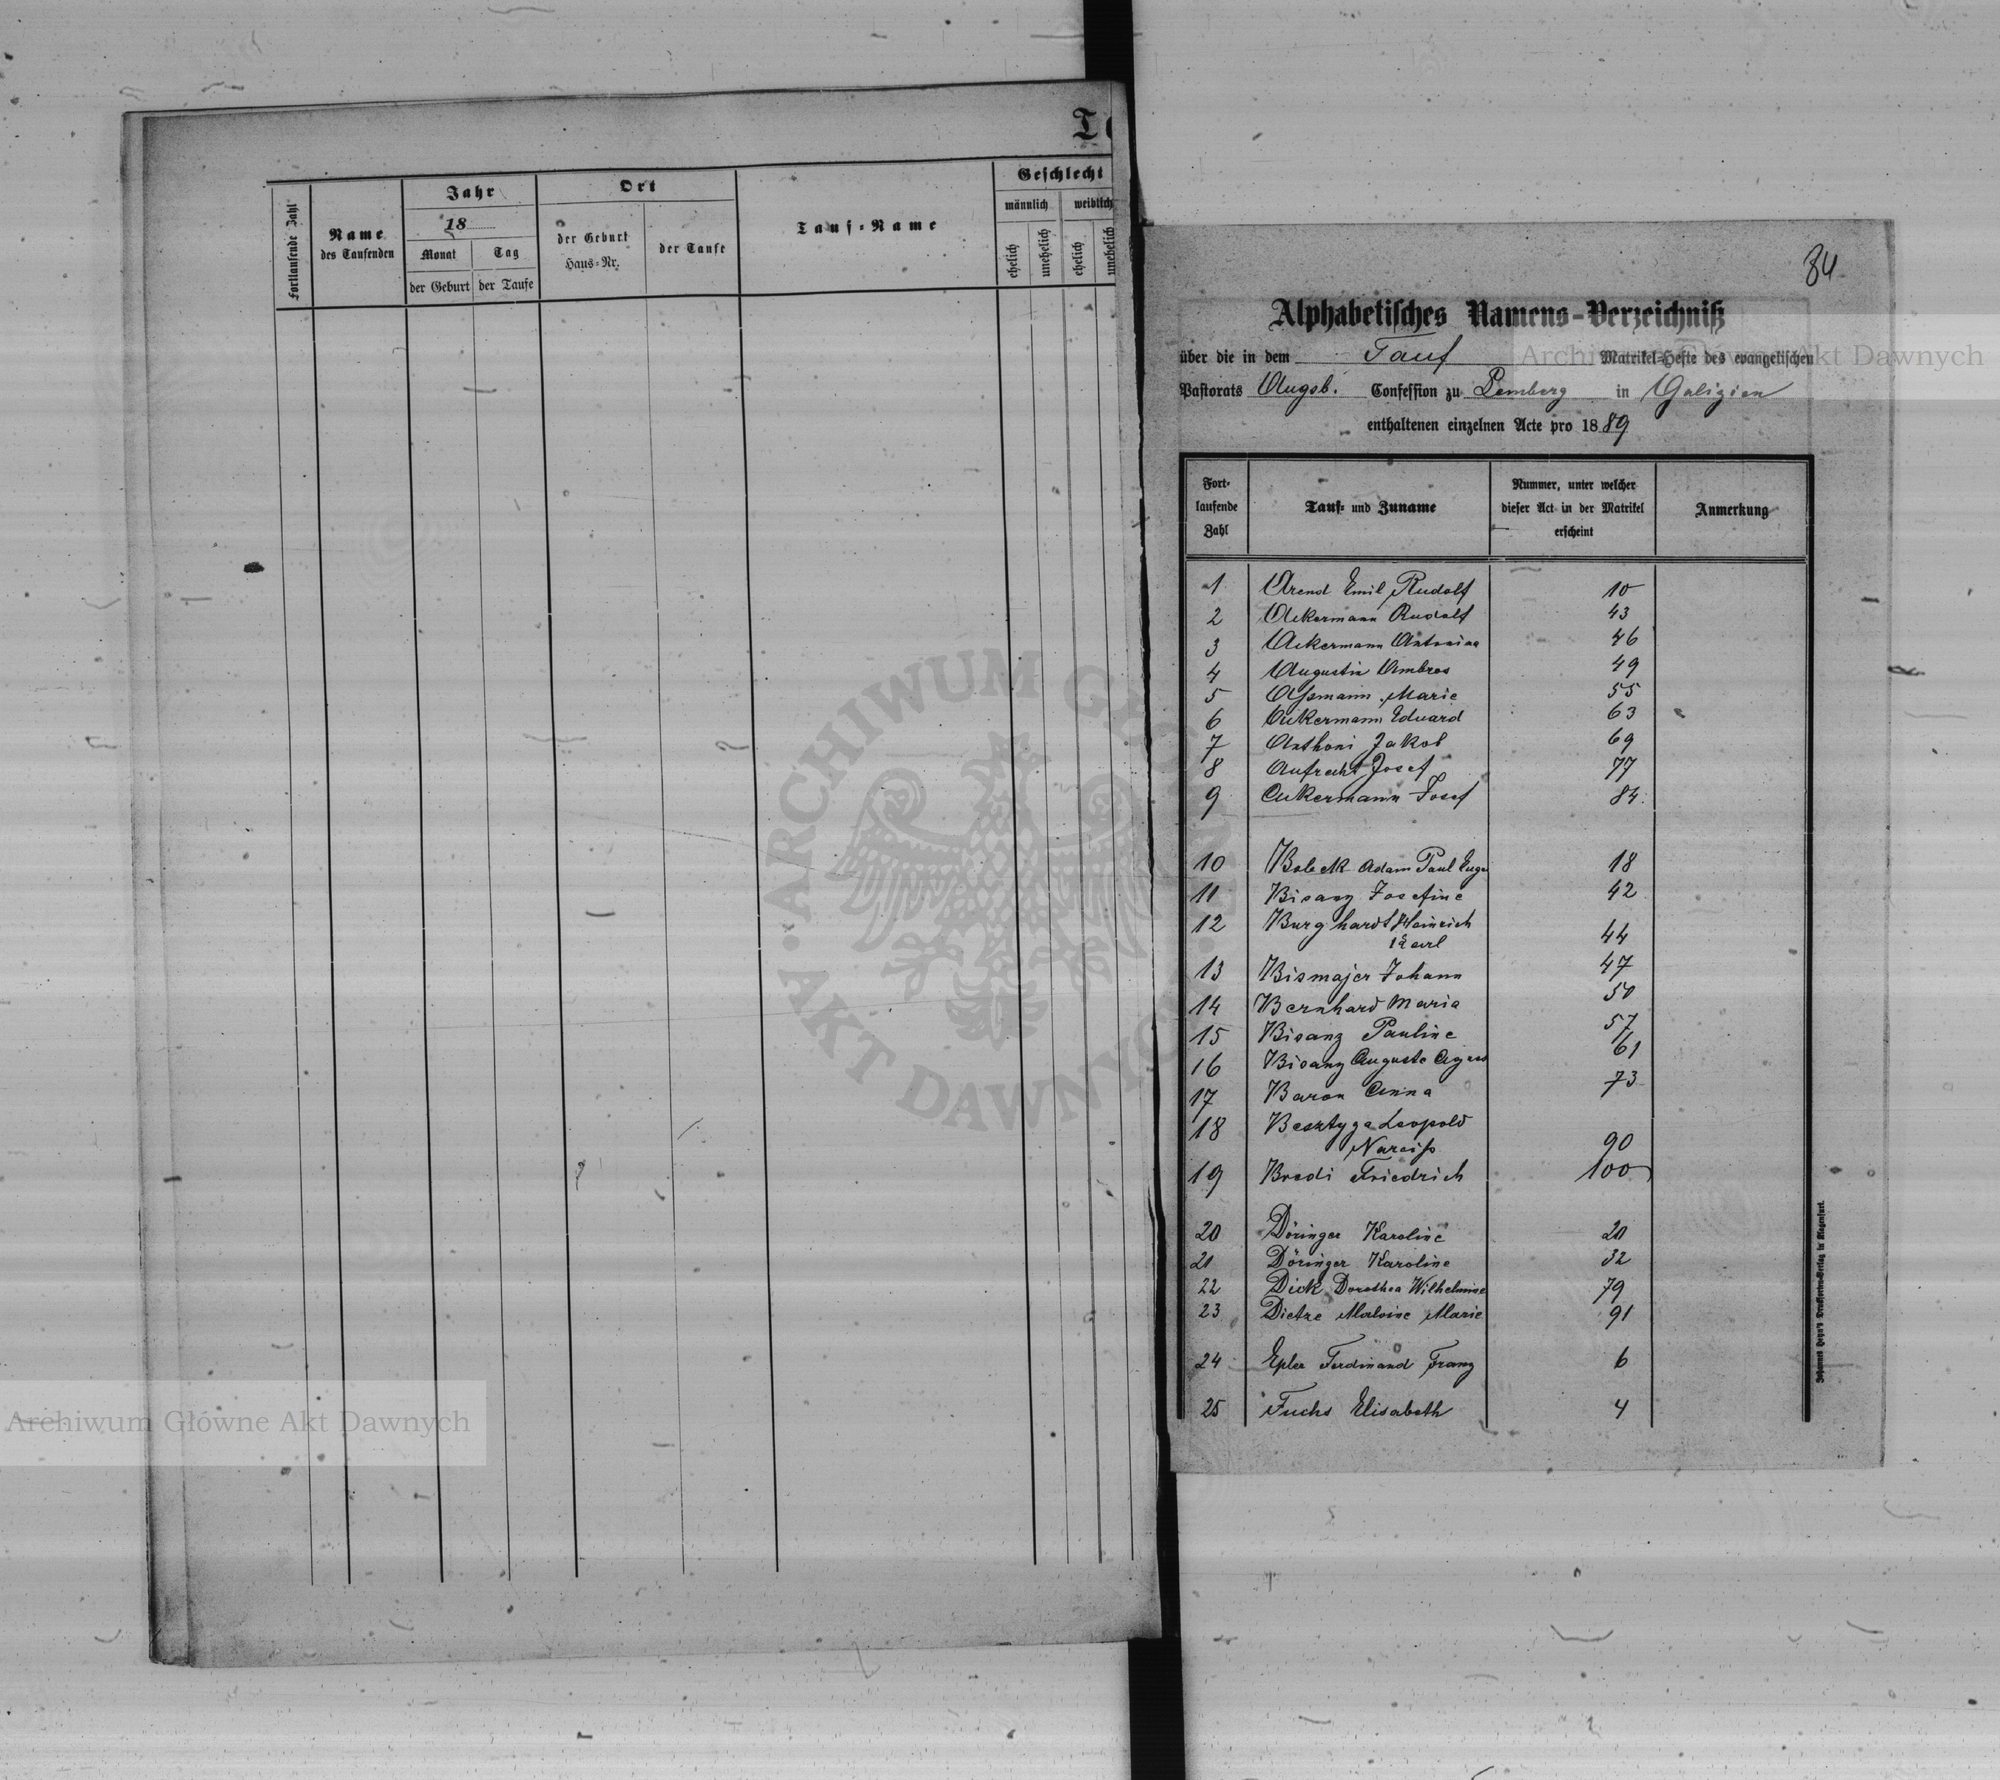 Ta
Fortlaufende Zahl
Name
des Taufenden
Jahr
18
Monat
Tag
der Geburt
der Taufe
Ort
der Geburt
Haus-Nr.
der Taufe
Tauf-Name
Geschlecht
männlich
weiblich
ehelich
unehelich
ehelich
unehelich
84
Alphabetisches Namens-Verzeichniß
über die in dem Tauf Matrikel-Hefte des evangelischen
Pastorats Augsb. Confession zu Lemberg in Galizien
enthaltenen einzelnen Acte pro 1889
Fort-
laufende
Zahl
Tauf- und Zuname
Nummer, unter welcher
dieser Act in der Matrikel
erscheint
Anmerkung
1 Arend Emil Rudolf 10
2 Ackermann Rudolf 43
3 Ackermann Antonina 46
4 Augustin Ambros 49
5 Assmann Marie 55
6 Ackermann Eduard 63
7 Anthoni Jakob 69
8 Aufrecht Josef 77
9 Ackermann Josef 84
10 Bobek Adam Paul Euge 18
11 Bisanz Josefine 42
12 Burghardt Heinrich
Karl 44
13 Bismajer Johann 47
14 Bernhard Maria 50
15 Bisanz Pauline 57
16 Bisanz Auguste Agnes 61
17 Baron Anna 73
18 Leopold
Narciss 90
19 Bredi Friedrich 100
20 Döringer Karoline 20
21 Döringer Karoline 32
22 Dick Dorothea Wilhelmine 79
23 Dietze Malvine Marie 91
24 Epler Ferdinand Franz 6
25 Fuchs Elisabeth 4
Johannes Heyn's Drucksorten-Verlag in Klagenfurt.
Archiwum Główne Akt Dawnych
Archiwum Główne Akt Dawnych
ARCHIWUM GŁÓWNE · AKT DAWNYCH ·